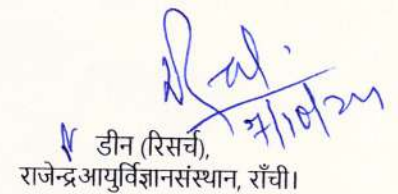 7/10/24
डीन (रिसर्च),
राजेन्द्रआयुर्विज्ञानसंस्थान, राँची।